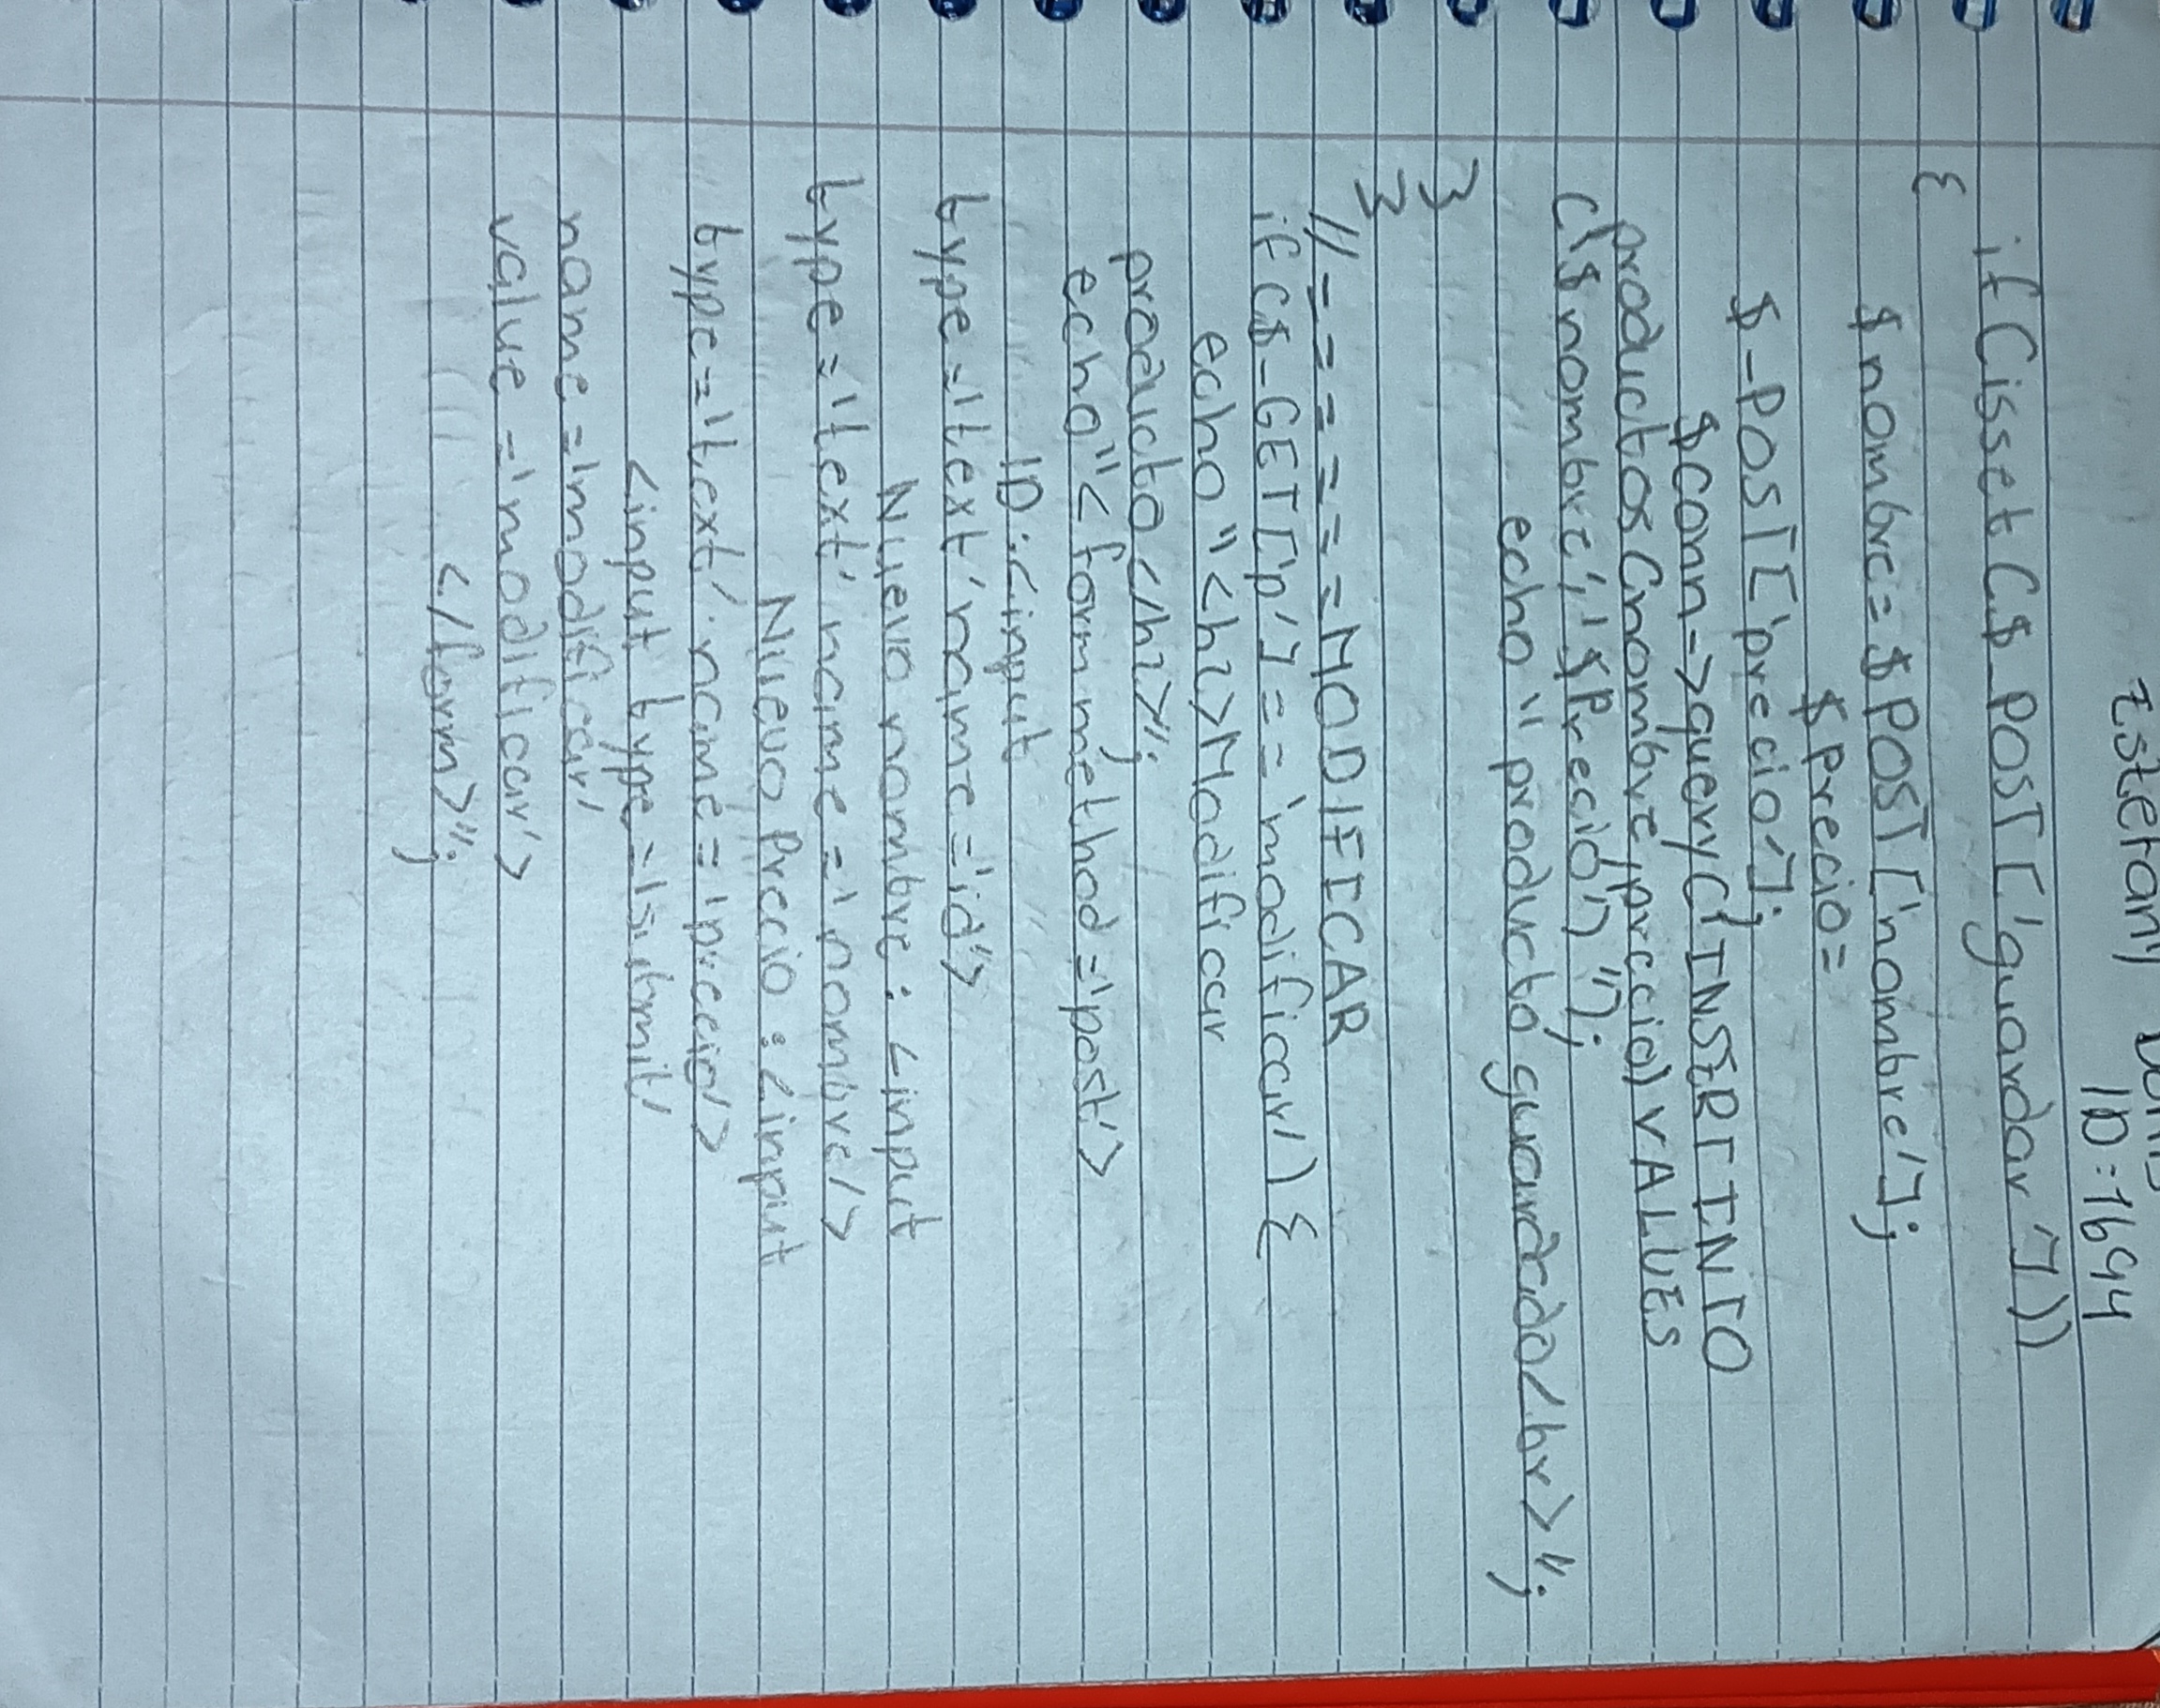 Estefany
ID:1644
if(isset($_POST['guardar']))
{
$nombre=$POST['nombre'];
$precio=
$_POST['precio'];
$conn->query("INSERTINTO
productos(nombre,precio)VALUES
('$nombre','$Precio')");
echo"producto guardado<br>";
}
}
//=======MODIFICAR
if($_GET['p']=='modificar'){
echo"<h2>Modificar
producto</h2>";
echo"<form method='post'>
ID:<input
type='text'name='id'>
Nuevo nombre:<input
type='text'name='nombre'>
Nuevo Precio:<input
type='text'name='precio'>
<input type='submit'
name='modificar'
value='modificar'>
</form>";